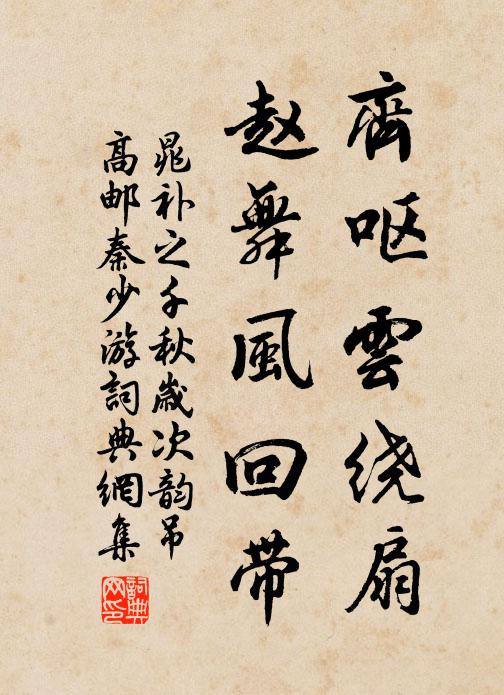 齊呕雲绕扇
赵舞風回带
晁补之千秋歲次韵吊
高邮秦少游詞典網集
詞典
网印